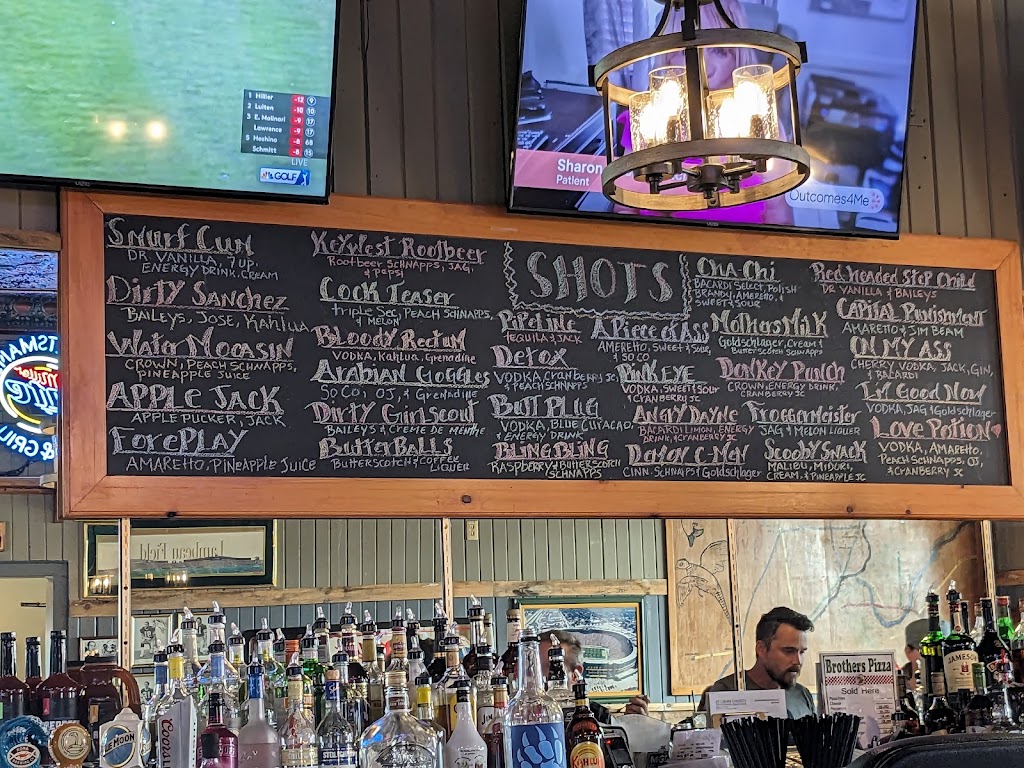 1 Hillier -12 9
2 Luiten -10 10
3 E. Molinari -9 17
Lawrence -9 17
5 Hechino -8 68
Schmitt -8 15
LIVE
GOLF
Sharon
Patient
Outcomes4Me
SHOTS
Smurf Cum
DR VANILLA, 7UP,
ENERGY DRINK, CREAM
Dirty Sanchez
BAILEYS, JOSE, KAHLUA
Water Mocasin
CROWN, PEACH SCHNAPPS,
PINEAPPLE JUICE
APPLE JACK
APPLE PUCKER, JACK
ForePLAY
AMARETTO, PINEAPPLE JUICE
KeyWest Rootbeer
ROOTBEER SCHNAPPS, JAG,
& PEPSI
Cock Teaser
TRIPLE SEC, PEACH SCHNAPPS,
& MELON
Bloody Rectum
VODKA, KAHLUA, GRENADINE
Arabian Goggles
SO CO, OJ, & GRENADINE
Dirty Girl Scout
BAILEYS & CREME DE MENTHE
ButterBalls
BUTTERSCOTCH & COFFEE
LIQUER
Pipeline
TEQUILA & JACK
Detox
VODKA, CRANBERRY JC,
& PEACH SCHNAPPS
BUTT PLUG
VODKA, BLUE CURACAO,
& ENERGY DRINK
BLING BLING
RASPBERRY & BUTTERSCOTCH
SCHNAPPS
A Piece of ASS
AMERETTO, SWEET & SOUR,
& SO CO
PINK EYE
VODKA, SWEET & SOUR
& CRANBERRY JC
ANGRY DAYNE
BACARDI LIMON, ENERGY
DRINK, & CRANBERRY JC
CINN. SCHNAPPS & GOLDSCHLAGER
Cha-Chi
BACARDI SELECT, POLISH
BRANDY, AMERETTO, &
SWEET & SOUR
Mothers Milk
GOLDSCHLAGER, CREAM &
BUTTERSCOTCH SCHNAPPS
Donkey Punch
CROWN, ENERGY DRINK,
CRANBERRY JC
Froggermeister
JAG & MELON LIQUER
Scooby SNACK
MALIBU, MIDORI,
CREAM, & PINEAPPLE JC
Red Headed Step Child
DR VANILLA & BAILEYS
CAPITAL PUNISHMENT
AMARETTO & JIM BEAM
ON MY ASS
CHERRY VODKA, JACK, GIN,
& BACARDI
I'm Good Now
VODKA, JAG & GOLDSCHLAGER
Love Potion
VODKA, AMARETTO,
PEACH SCHNAPPS, OJ,
& CRANBERRY JC
& GRILL
Lambeau Field
Brothers Pizza
Sold Here
JAMESON